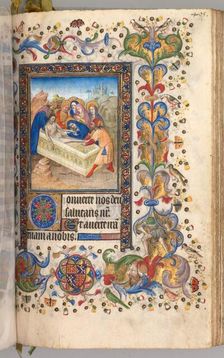 Converte nos deu
salutaris nr̄
Et averte irā
tuam a nobis.